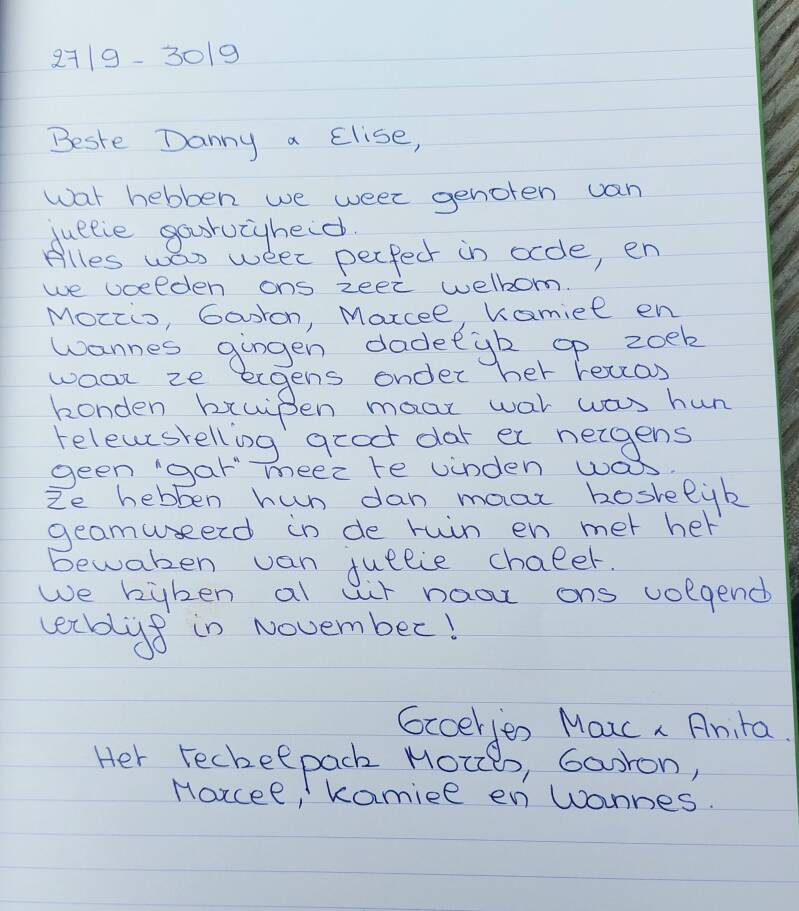 27/9 - 30/9
Beste Danny & Elise,
Wat hebben we weer genoten van
jullie gastvrijheid.
Alles was weer perfect in orde, en
we voelden ons zeer welkom.
Morris, Gaston, Marcel, Kamiel en
Wannes gingen dadelijk op zoek
waar ze ergens onder het terras
konden kruipen maar wat was hun
teleurstelling groot dat er nergens
geen "gat" meer te vinden was.
Ze hebben hun dan maar kostelijk
geamuseerd in de tuin en met het
bewaken van jullie chalet.
We kijken al uit naar ons volgend
verblijf in November!
Groetjes Marc & Anita.
Het teckelpack Morris, Gaston,
Marcel, Kamiel en Wannes.